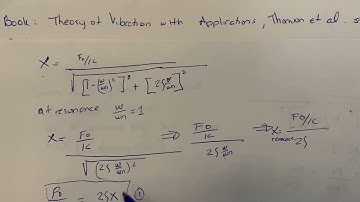 Book: Theory of Vibration with Applications, Thomson et al. s
X = F0/K / √([1-(w/wn)²]² + [2ζ w/wn]²)
at resonance w/wn = 1
X = F0/K / √((2ζ w/wn)²) ⇒ F0/K / 2ζ w/wn ⇒ X = F0/K / 2ζ
F0 = 2ζX ①